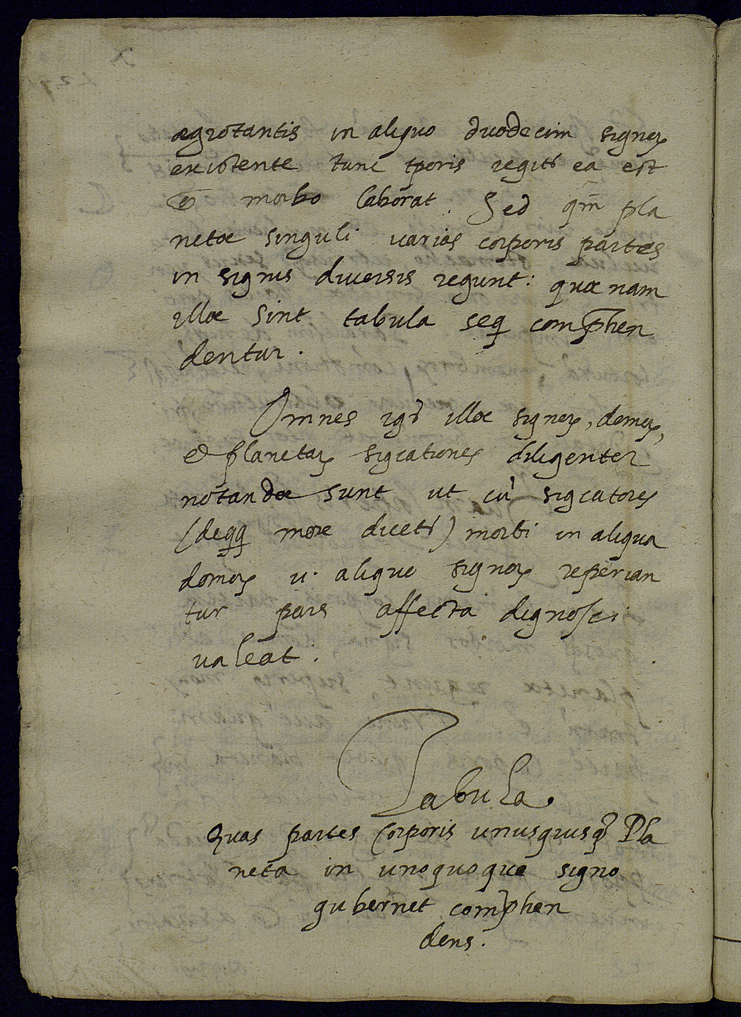 ægrotantis in aliquo duodecim signoꝝ
existente tunc tp̄oris regit͛ ea est
morbo laborat. Sed qm̄ pla
netæ singuli varias corporis partes
in signis diversis regunt: quæ nam
illæ sint tabula seq̄ comp̄hen
dentur.
Omnes igr̄ illæ signoꝝ, domoꝝ,
& planetaꝝ sigcationes diligenter
notandæ sunt ut cū sigcatores
more dicet͛) morbi in aliqua
domoꝝ u. aliquo signoꝝ reperian
tur pars affecta dignosci
valeat.
Tabula
Quas partes Corporis unusquisq̨ Pla
neta in unoquoque signo
gubernet comp̄hen
dens.